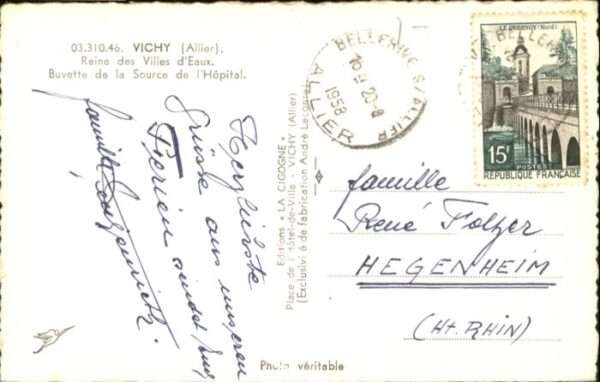 03.310.46. VICHY (Allier).
Reine des Villes d'Eaux.
Buvette de la Source de l'Hôpital.
Herzlichste
Grüsse aus unseren
Ferien sendet Euch
famille
Editions "LA CIGOGNE"
Place de l'Hôtel-de-Ville - VICHY (Allier)
(Exclusivité de fabrication André Leconte)
BELLERIVE S/ALLIER
1958
ALLIER
LE QUESNOY (Nord)
15F
POSTES
REPUBLIQUE FRANÇAISE
famille
René Folzer
HEGENHEIM
(Ht. RHIN)
Photo véritable